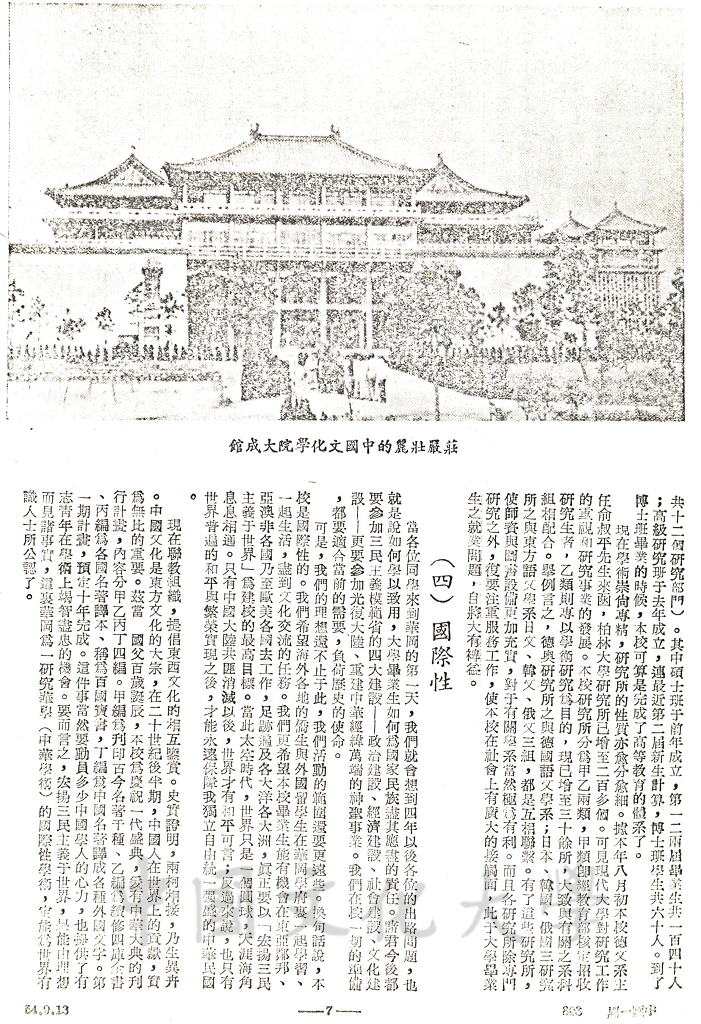 莊嚴壯麗的中國文化學院大成館
共十二個研究部門）。其中碩士班于前年成立，第一二兩屆畢業生共一百四十人
；高級研究班于去年成立，連最近第二屆新生計算，博士班學生共六十人。到了
博士班畢業的時候，本校可算是完成了高等教育的體系了。
現在學術崇尚專精，研究所的性質亦愈分愈細。據本年八月初本校德文系主
任俞叔平先生來函，柏林大學研究所已增至二百多個。可見現代大學對研究工作
的重視和研究事業的發展。本校研究所分為甲乙兩類，甲類即經教育部核定招收
研究生者，乙類則專以學術研究為目的，現已增至三十餘所，大致與有關之系科
組相配合。舉例言之，德奧研究所之與德國語文學系；日本、韓國、俄國三研究
所之與東方語文學系日文、韓文、俄文三組，都是互相聯繫。有了這些研究所，
使師資與圖書設備更加充實，對于有關學系當然極為有利。而且各研究所除專門
研究之外，復要注重服務工作，使本校在社會上有廣大的接觸面，此于大學畢業
生之就業問題，自將大有裨益。
（四）國際性
當各位同學來到華岡的第一天，我們就會想到四年以後各位的出路問題，也
就是說如何學以致用，大學畢業生如何為國家民族盡其應盡的責任。諸君今後都
要參加三民主義模範省的四大建設——政治建設、經濟建設、社會建設、文化建
設——更要參加光復大陸、重建中華經緯萬端的神聖事業。我們在校一切的準備
，都要適合當前的需要，負荷歷史的使命。
可是，我們的理想還不止于此，我們活動的範圍還要更遠些。換句話說，本
校是國際性的。我們希望海外各地的僑生與外國留學生在華岡學府裏一起學習、
一起生活，盡到文化交流的任務。我們更希望本校畢業生能有機會在東亞鄰邦、
亞澳非各國乃至歐美各國去工作，足跡遍及各大洋各大洲，真正要以「宏揚三民
主義于世界」為建校的最高目標。當此太空時代，世界只是一個圓球，天涯海角
息息相通。只有中國大陸共匪消滅以後，世界才有和平可言；反過來說，也只有
世界普遍的和平與繁榮實現之後，才能永遠保障我獨立自由統一強盛的中華民國
。
現在聯教組織，提倡東西文化的相互鑒賞。史實證明，兩柯相接，乃生異卉
。中國文化是東方文化的大宗，在二十世紀後半期，中國人在世界上的貢獻，實
為無比的重要。茲當　國父百歲誕辰，本校為慶祝一代盛典，爰有中華大典的刊
行計畫，內容分甲乙丙丁四編。甲編為刋印古今名著千種、乙編為續修四庫全書
、丙編為各國名著譯本、稱為百國寶書，丁編為中國名著譯成各種外國文字。第
一期計畫，預定十年完成。這件事當然要動員多少中國學人的心力，也提供了有
志青年在學術上竭智盡忠的機會。要而言之，宏揚三民主義于世界，是能由理想
而見諸事實，這裏華岡為一研究華學（中華學術）的國際性學術，定能為世界有
識人士所公認了。
54.9.13
——7——
803